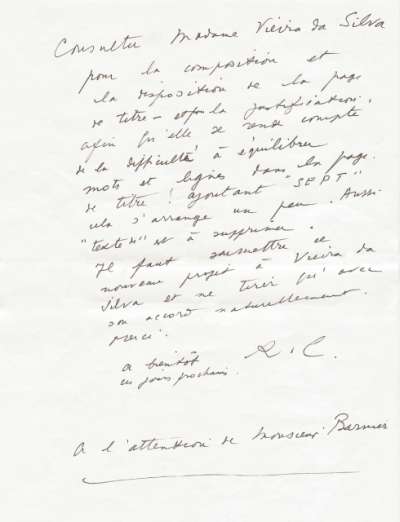 Consulter Madame Vieira da Silva
pour la composition et
la disposition de la page
de titre – et pr la justification.
afin qu'elle se rende compte
de la difficulté à équilibrer
mots et lignes dans la page
de titre ! ajoutant "SEPT"
cela s'arrange un peu. Aussi
"textes" est à supprimer.
Il faut soumettre ce
nouveau projet à Vieira da
Silva et ne tirer qu'avec
son accord naturellement.
merci.
a bientôt R.C.
ces jours prochains.
A l'attention de Monsieur